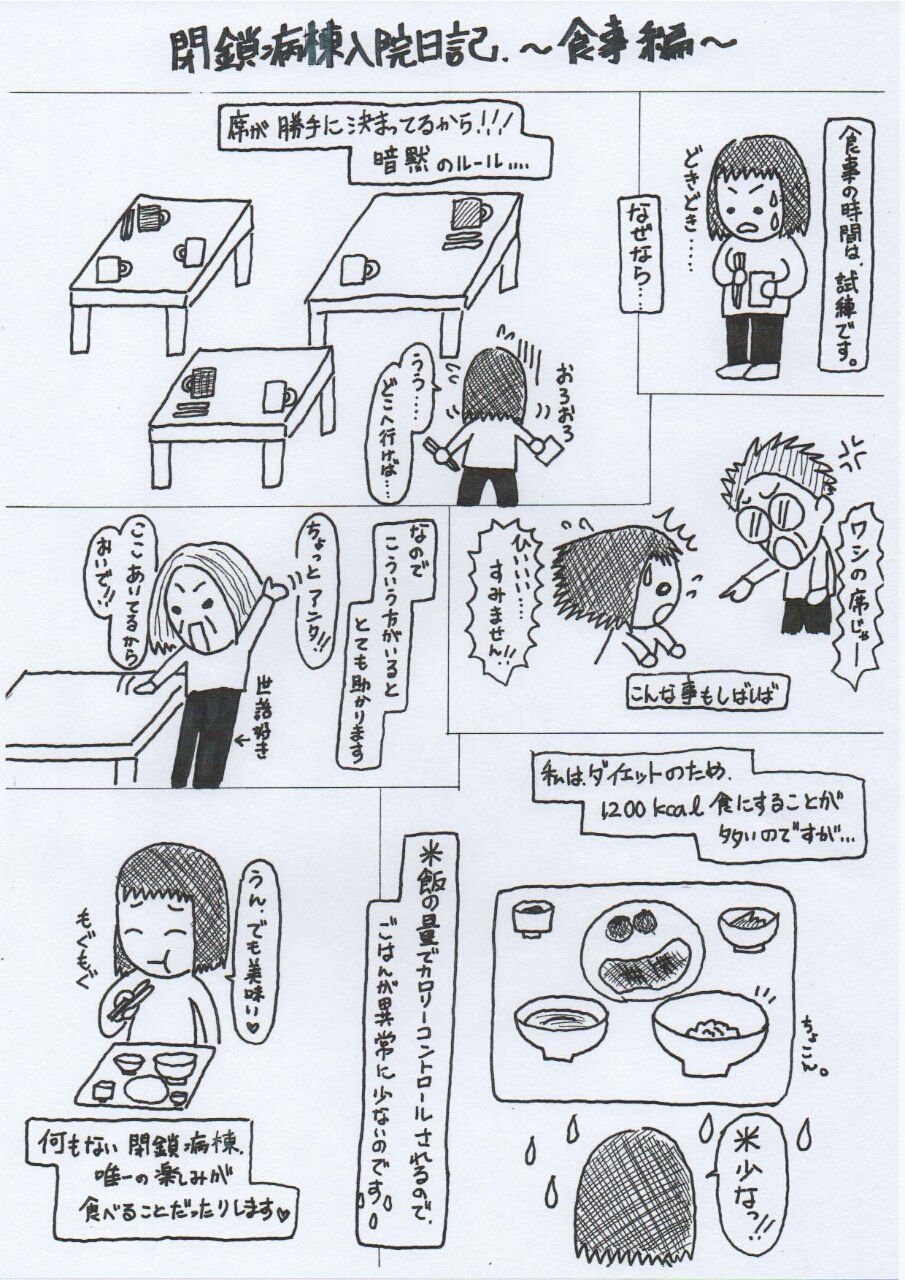 閉鎖病棟入院日記.～食事編～
食事の時間は、試練です。
どきどき……
なぜなら…
席が勝手に決まってるから!!!
暗黙のルール….
おろおろ
うう……
どこへ行けば…
ワシの席じゃー
ひいい……
すみません!!
こんな事もしばしば
なので
こういう方がいると
とても助かります
ちょっとアンタ!!
ここあいてるから
おいで!!
←世話好き
私は、ダイエットのため、
1,200kcal食にすることが
多いのですが…
ちょこん。
米少なっ!!
米飯の量でカロリーコントロールされるので、
ごはんが異常に少ないのです。
うん、でも美味い♥
もぐもぐ
何もない閉鎖病棟、
唯一の楽しみが
食べることだったりします♥